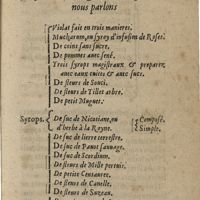 nous parlons
Violat fait en trois manieres.
Mucharum, ou syrop d'infusion de Roses.
De coins sans sucre.
De pommes avec sené.
Trois syrops magistraux & preparez
avec eaux cuites & avec sucs.
De fleurs de Souci.
De fleurs de Tillet arbre.
De petit Muguet.
Syrops. De suc de Nicotiane, ou
d'herbe à la Royne. Composé.
Simple.
De suc de lierre terrestre.
De suc de Pavot sauvage.
De suc de Scordium.
De fleurs de Mille pertuis.
De petite Centauree.
De fleurs de Canelle.
De fleurs de Suzeau.